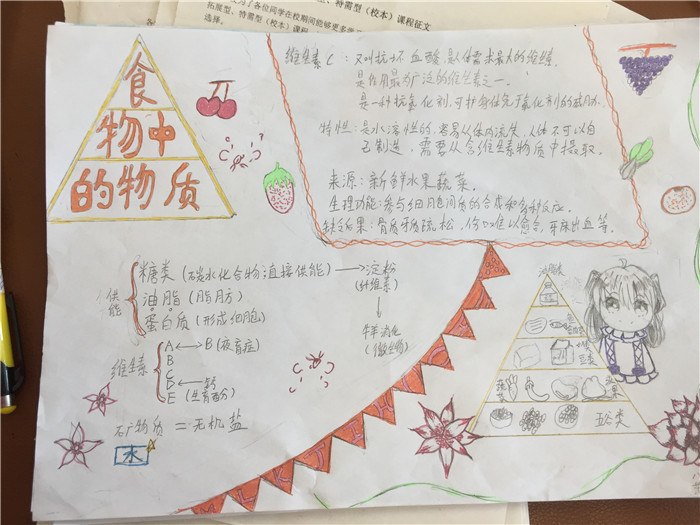 为了各位同学在校期间能够更多
拓展型、特需型(校本)课程
选择。
、特需型(校本)课程征文
食
物中
的物质
维生素C:又叫抗坏血酸,是人体需求最大的维生素.
是作用最为广泛的维生素之一.
是一种抗氧化剂,可护身体免于氧化剂的威胁.
特性:是水溶性的,容易从体内流失,人体不可以自
己制造,需要从含维生素物质中摄取.
来源:新鲜水果蔬菜.
生理功能:参与细胞间质的合成和多种反应.
缺乏后果:骨质牙质疏松,伤口难以愈合,牙床出血等.
供能
糖类(碳水化合物直接供能)→淀粉
(纤维素)
油脂(脂肪)
蛋白质(形成细胞)
(微生物)
维生素
A ← B(夜盲症)
B
C
D ← 钙
E(生育酚)
矿物质 = 无机盐
水
油脂类
豆类
蔬菜
水果
五谷类